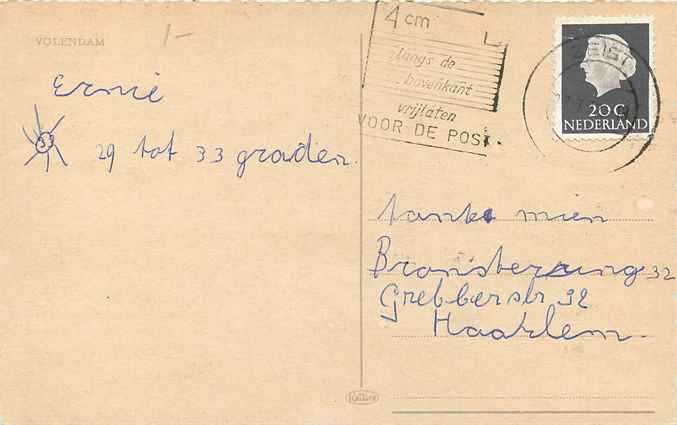 VOLENDAM
1-
Ernie
33 29 tot 33 graden.
4 cm
langs de
bovenkant
vrijlaten
VOOR DE POST.
ZEIST
20 C
NEDERLAND
tante mien
32
Grebberstr 32
Haarlem.